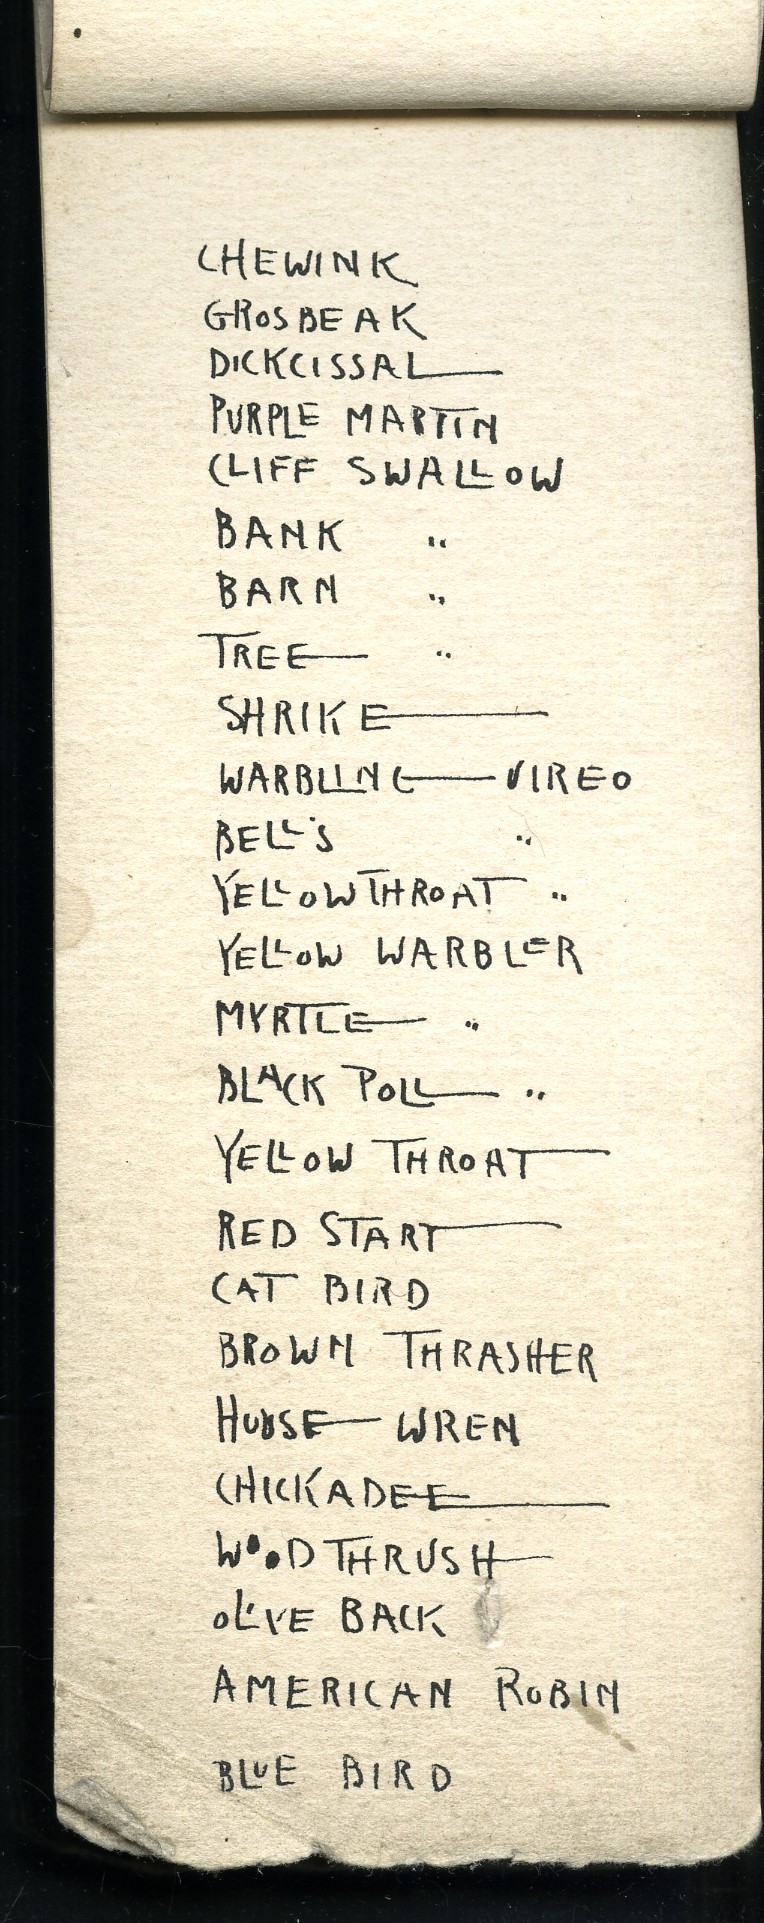 CHEWINK
GROSBEAK
DICKCISSAL
PURPLE MARTIN
CLIFF SWALLOW
BANK "
BARN "
TREE "
SHRIKE
WARBLING VIREO
BELL'S "
YELLOWTHROAT "
YELLOW WARBLER
MYRTLE "
BLACK POLL "
YELLOW THROAT
RED START
CAT BIRD
BROWN THRASHER
HOUSE WREN
CHICKADEE
WOOD THRUSH
OLIVE BACK
AMERICAN ROBIN
BLUE BIRD